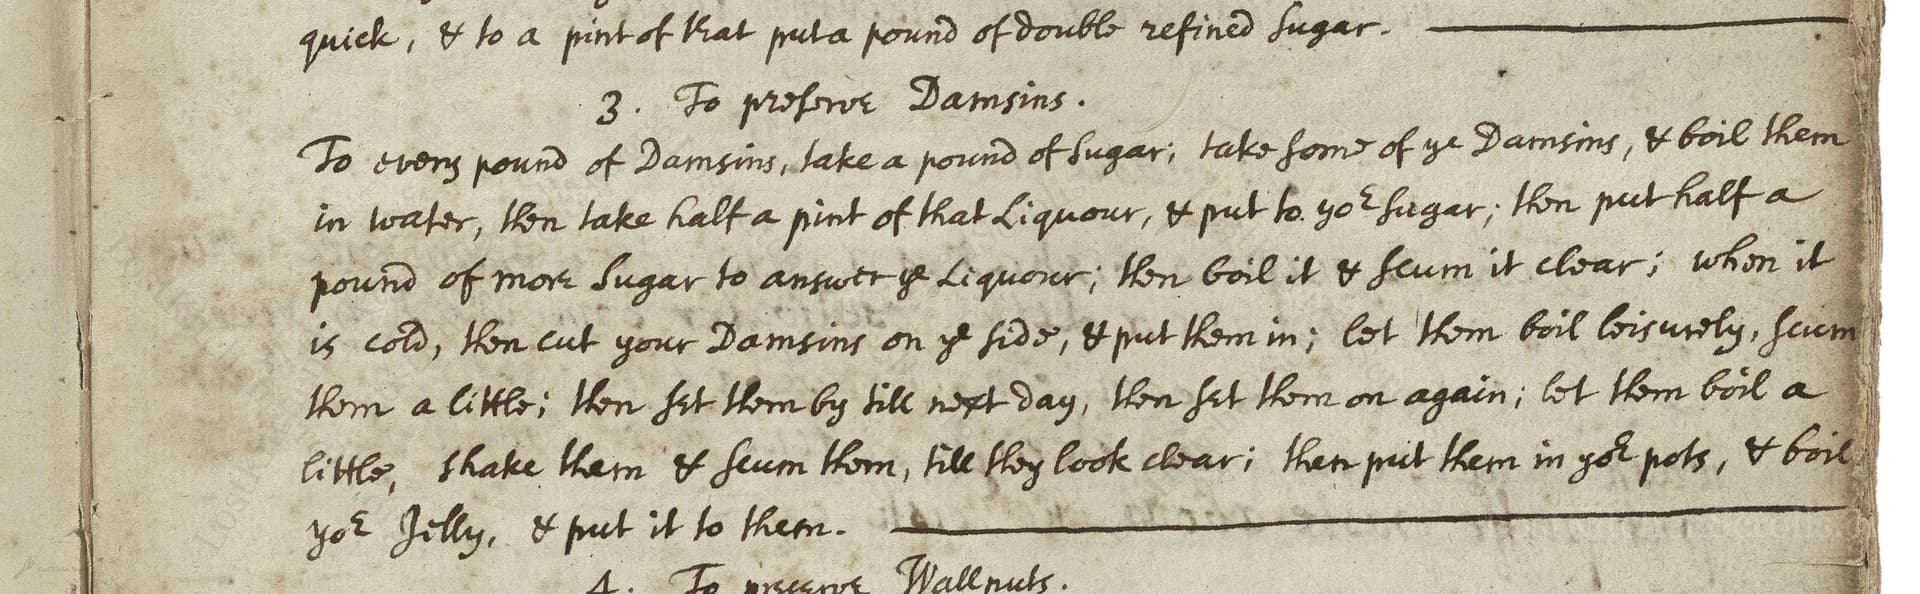 quick, & to a pint of that put a pound of double refined Sugar.
3. To preserve Damsins.
To every pound of Damsins, take a pound of Sugar; take some of ye Damsins, & boil them
in water, then take half a pint of that Liquour, & put to yor Sugar; then put half a
pound of more Sugar to answer ye Liquour; then boil it & scum it clear; when it
is cold, then cut your Damsins on ye side, & put them in; let them boil leisurely, scum
them a little; then set them by till next day, then set them on again; let them boil a
little, shake them & scum them, till they look clear; then put them in yor pots, & boil
yor Jelly, & put it to them.
4. To preserve Wallnuts.